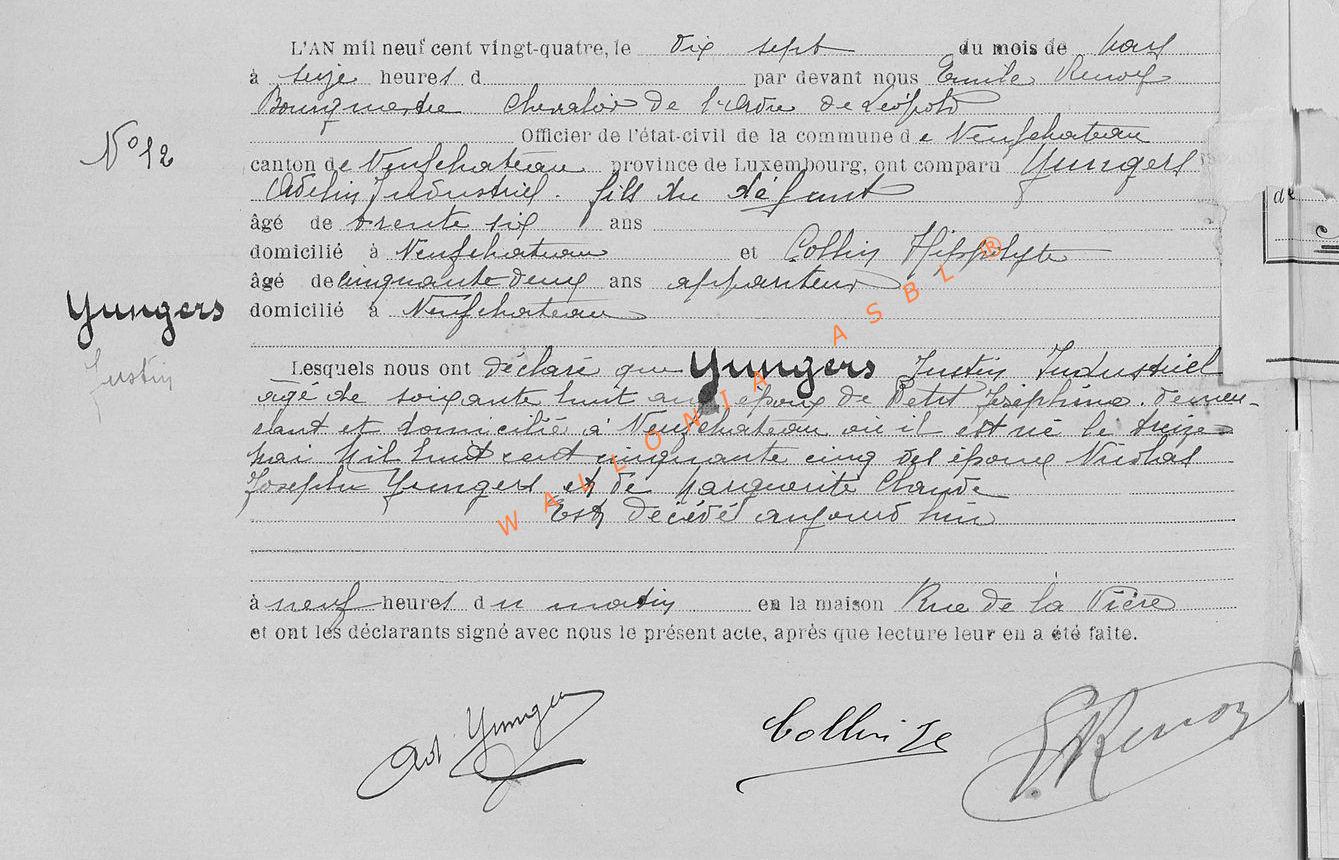 L'AN mil neuf cent vingt-quatre, le dix sept du mois de mars
à seize heures d par devant nous Emile Renoz
Bourgmestre Chevalier de l'Ordre de Léopold
Officier de l'état-civil de la commune de Neufchateau
N° 12
canton de Neufchateau province de Luxembourg, ont comparu Yungers
Adelin Industriel. fils du défunt
âgé de trente six ans
domicilié à Neufchateau et Collin Hippolyte
âgé de cinquante deux ans appariteur
Yungers
domicilié à Neufchateau
Justin
Lesquels nous ont déclaré que Yungers Justin Industriel
âgé de soixante huit ans époux de Petit Joséphine. demeu-
rant et domicilié à Neufchateau où il est né le treize
mai mil huit cent cinquante cinq des époux Nicolas
Joseph Yungers et de Marguerite Claude
Est décédé aujourd'hui
à neuf heures du matin en la maison Rue de la
et ont les déclarants signé avec nous le présent acte, après que lecture leur en a été faite.
Ad. Yungers
Collin
E. Renoz
WALLONIA ASBL ®